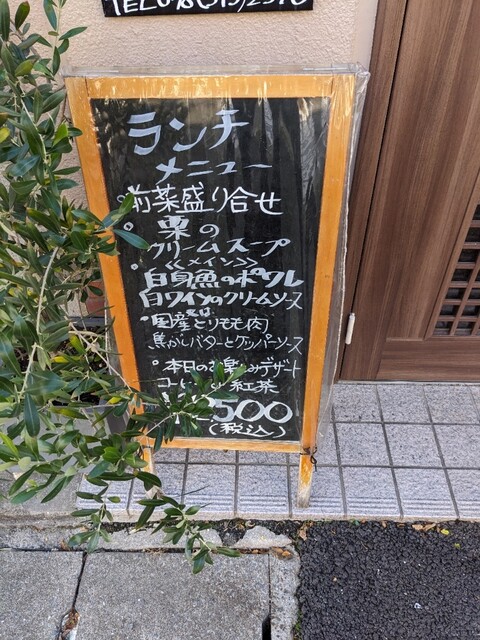 ランチ
メニュー
・前菜盛り合せ
・栗の
クリームスープ
<<メイン>>
・白身魚のポワレ
白ワインのクリームソース
又は
・国産とりもも肉
焦がしバターとケッパーソース
・本日のお楽しみデザート
コーヒー 紅茶
500
(税込)